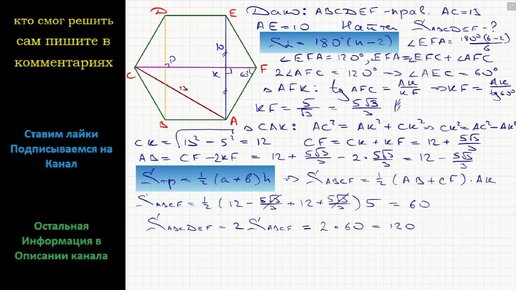 кто смог решить
сам пишите в
комментариях
Ставим лайки
Подписываемся на
Канал
Остальная
Информация в
Описании канала
D E
10
C P K 60° F
13
B A
Дано: ABCDEF - прав. AC=13
AE=10 Найти S_ABCDEF-?
S_α = 180°(n-2) ∠EFA = 180°(6-2)/6
∠EFA=120°, EFA=∠EFC+∠AFC
2∠AFC = 120° ⇒ ∠AEC = 60°
△AFK: tg AFC = AK/KF ⇒ KF = AK/tg60°
KF = 5/√3 = 5√3/3 △CAK: AC² = AK² + CK² ⇒ CK² = AC² - AK²
CK = √13² - 5² = 12 CF = CK + KF = 12 + 5√3/3
AB = CF - 2KF = 12 + 5√3/3 - 2 · 5√3/3 = 12 - 5√3/3
S_тр = ½ (a+b)h ⇒ S_ABCF = ½ (AB + CF) · AK
S_ABCF = ½ (12 - 5√3/3 + 12 + 5√3/3) 5 = 60
S_ABCDEF = 2 S_ABCF = 2 · 60 = 120